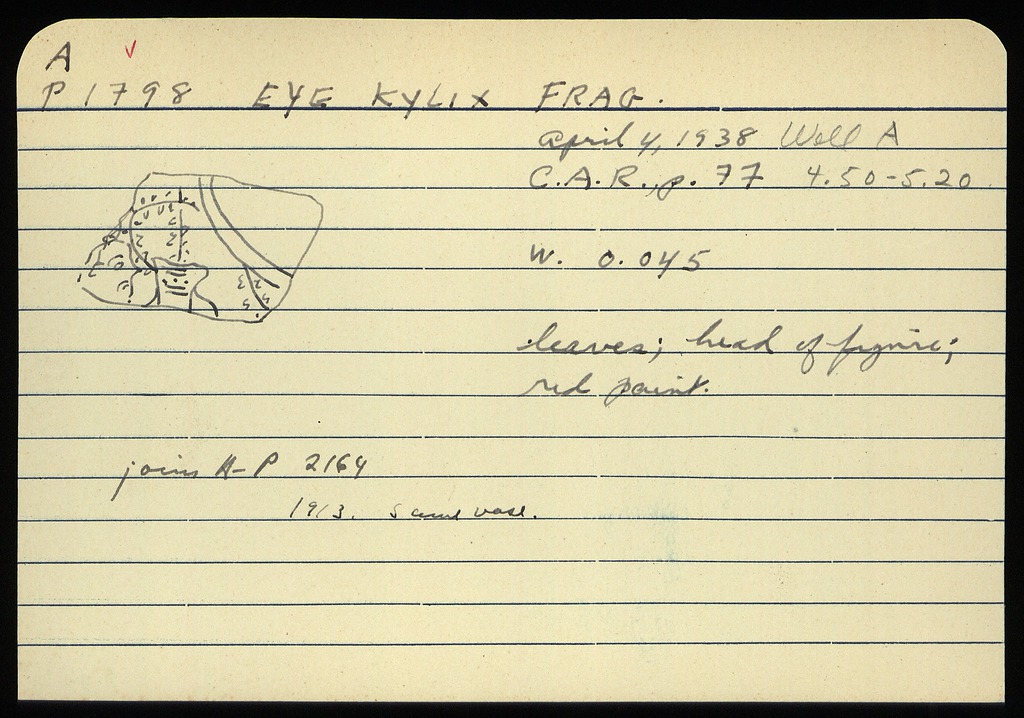 A
P 1798 EYE KYLIX FRAG.
April 4, 1938 Well A
C.A.R., p. 77 4.50-5.20
W. 0.045
leaves; head of figure;
red paint.
joins A-P 2164
1913. same vase.